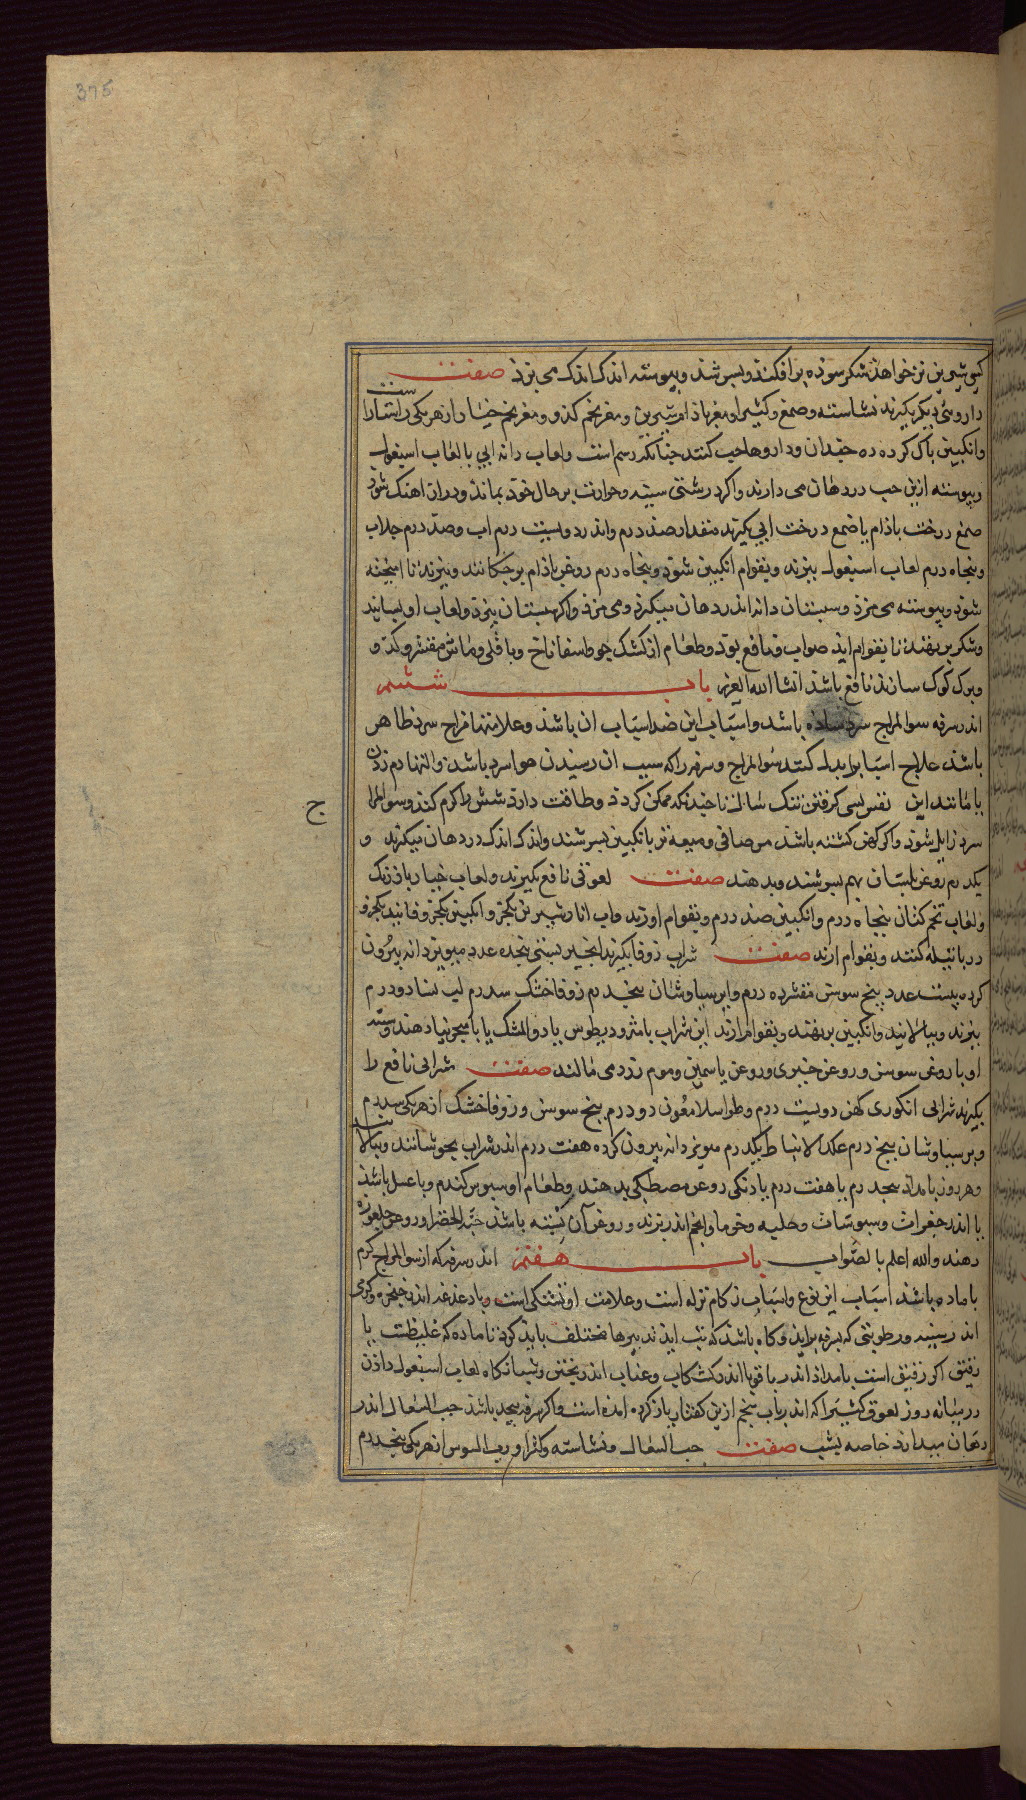 375
شیرین تر خواهذ شکر سوذه برافکند و بسرشند و پیوسته اندک اندک می مزذ صفت
داروئی دیگر بگیرند نشاسته و صمغ و کثیرا و مغز باذام شیرین و مغز تخم کدو و مغز تخم خیار از هر یکی راستا راست
وانکبین پاک کرده ده چندان و داروها حب کنند چنانکه رسم است و لعاب دانه ابی یا لعاب اسبغول
و پیوسته ازین حب در دهان می دارند و اکر درشتی سینه و حرارت بر حال خوذ بماند
صمغ درخت باذام یا صمغ درخت ابی بگیرند مقدار صد درم و اندر دویست درم اب و صد درم جلاب
و پنجاه درم لعاب اسبغول بپزند و بقوام انکبین شوذ و پنجاه درم روغن باذام برچکانند و بپزند تا امیخته
شوذ و پیوسته می مزذ و سبستان دانه اندر دهان میگیرذ و می مزذ و اکر سبستان بپزذ و لعاب او بستانند
و شکر برنهند تا بقوام ایذ صواب و نافع بوذ و طعام از کشک جو و اسفاناخ و باقلی و ماش مقشر و کدو
و برک کوک سازند نافع باشذ انشا الله العزیز باب ششم
اندر سرفه سوالمزاج سرد ساذه باشد و اسباب این ضد اسباب ان باشذ و علامتها مزاج سرد ظاهر
باشذ علاج اسباب را بدل کنند سوالمزاج و سرفه را که سبب ان رسیدن هوا سرد باشذ والتها دم زدن
یا مانند این نفس بسی کرفتن تنک شان تا چندانکه ممکن کردد و طاقت دارد شش را کرم کند و سوالمزا
ج
سرد زایل شوذ و اکر کهن کشته باشذ مر صافی و میعه تر بانکبین بسرشند و اندک اندک در دهان میگیرند و
یکدرم روغن بلسان بهم بسرشند و بدهند صفت لعوقی نافع بگیرند و لعاب خیار باذرنک
و لعاب تخم کتان پنجاه درم و انکبین صد درم و بقوام اورند و اب انار شیرین یکجزو و انکبین یکجزو و فانید یکجزو
در پاتیله کنند و بقوام ارند صفت شراب زوفا بگیرند انجیر بستی پنجده عدد مویز دانه بیرون
کرده بیست عدد بیخ سوس مقشر ده درم و پرسیاوشان پنجدرم زوفا خشک سدرم لبنا دو درم
بپزند و بپالایند و انکبین برنهند و بقوام ارند این شراب با مثرودیطوس یا دوالمشک یا با سجزینیا دهند و سینه
او با روغن سوسن و روغن خیری و روغن یاسمین و موم زرد می مالند صفت شرابی نافع را
بگیرند شرابی انکوری کهن دویست درم و طراسلامعون دو درم بیخ سوسن و زوفا خشک از هر یکی سدرم
و پرسیاوشان پنج درم علک الانباط یکدرم مویز دانه بیرون کرده هفت درم اندر شراب بجوشانند و بپالایند
و هر روز بامداد پنجدرم یا هفت درم با دنکی روغن مصطکی بدهند و طعام او سبوس کندم و با عسل باشذ
یا اندر جغرات و سبوسات و حلبه و خرما و انجیر اندر پزند و روغن آن پسته باشذ حبة الخضرا و روغن جلغوزه
دهند والله اعلم بالصواب باب هفتم اندر سرفه که از سوالمزاج کرم
با ماده باشذ اسباب این نوع و اسباب زکام نزله است و علامت او تشنکی است و با دغدغه اندر حنجره و کرمی
اندر سینه و رطوبتی که بسرفه براید و کاه باشذ که تب ایذ تدبیرها مختلف بایذ کرد تا ماده که غلیظست یا
رقیق اکر رقیق است بامداذ اندر باقی یا اندر کشکاب و عناب اندر پختن و شبانکاه لعاب اسبغول داذن
در میانه روز لعوق کثیرا که اندر باب پنجم ازین کفتار یاذ کرده امده است و اکر سرفه بیحد باشذ حب السعال اندر
دهان میدارد خاصه بشب صفت حب السعال نشاسته و کثیرا و رب السوس از هر یکی پنجدرم